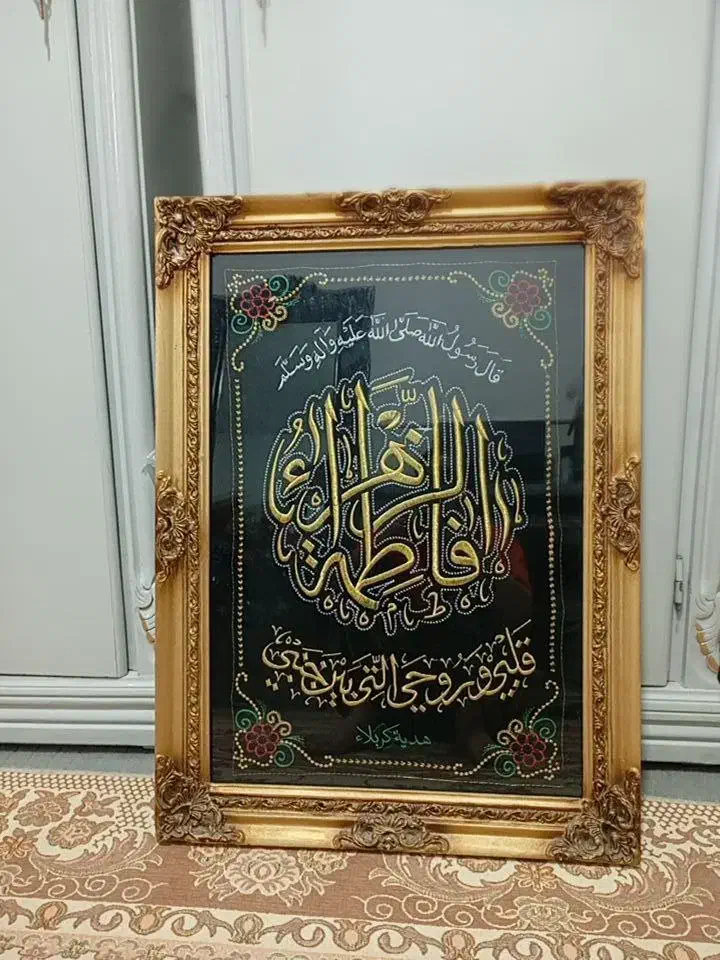 قَالَ رَسُولُ اللَّه صَلَّىٰ اللَّهُ عَلَيْهِ وَآلِهِ وَسَلَّم
فاطمة الزهراء
قَلْبِي وَرُوحِيَ الَّتِي بَيْنَ جَنْبَيَّ
هدية كربلاء